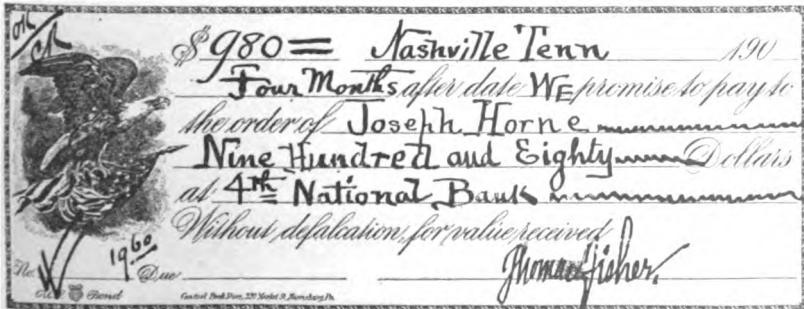 OK
CR
$ 980= Nashville Tenn 190
Four Months after date WE promise to pay to
the order of Joseph Horne
Nine Hundred and Eighty Dollars
at 4th National Bank
Without defalcation, for value received
No. 1960 Due Thomas Fisher.
Bond Central Book Store, 329 Market St. Harrisburg Pa.